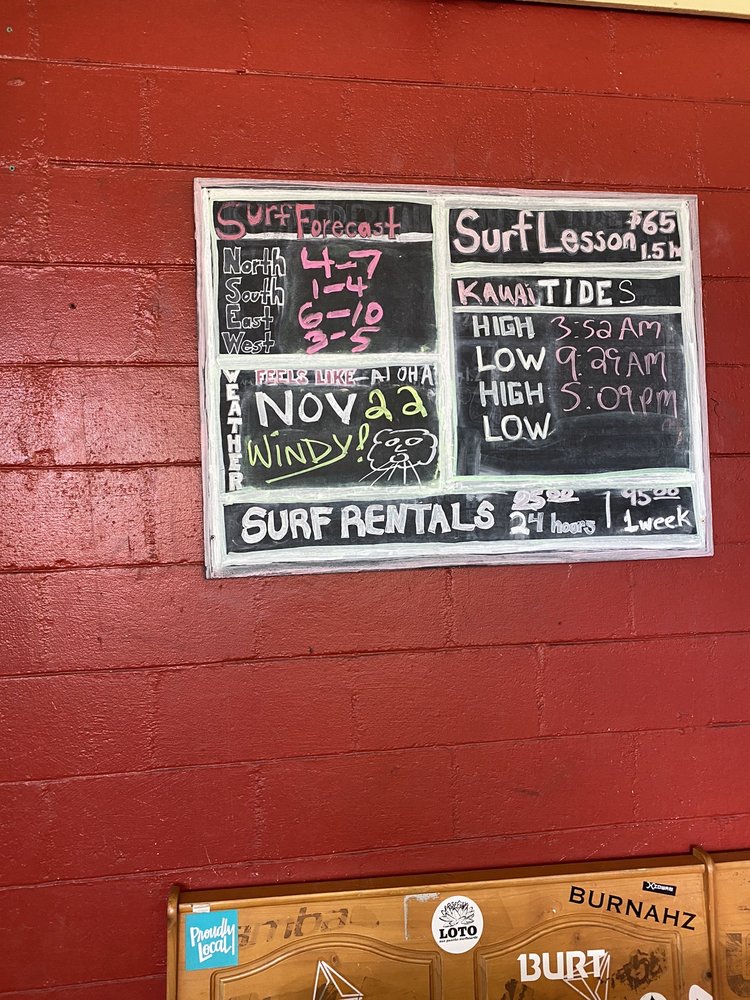 Surf Forecast
North 4-7
South 1-4
East 6-10
West 3-5
WEATHER
FEELS LIKE ALOHA
NOV 22
WINDY!
Surf Lesson $65
1.5 h
KAUAI TIDES
HIGH 3:52 AM
LOW 9:29 AM
HIGH 5:09 pm
LOW
SURF RENTALS 25.00 95.00
24 hours | 1 week
XCDURO
BURNAHZ
Proudly
Local!
LOTO
BURT